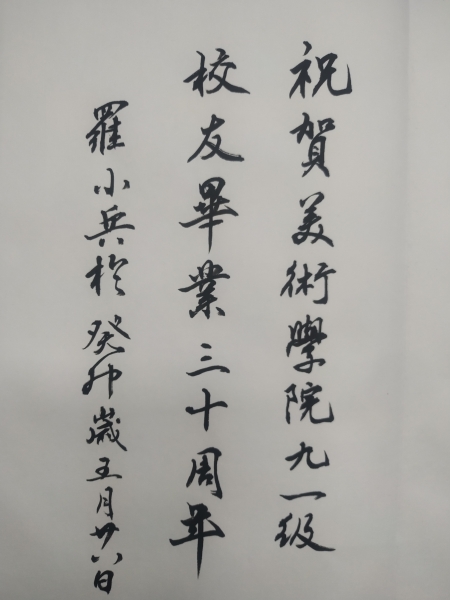 祝賀美術學院九一级
校友畢業三十周年
羅小兵於癸卯歲五月廿八日